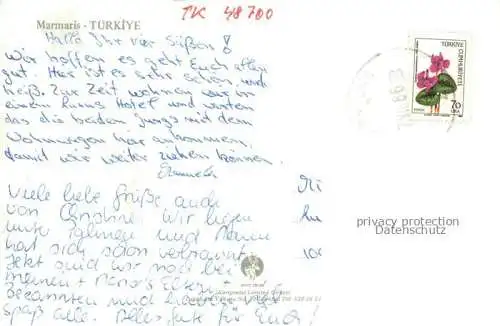 TK 48700
Marmaris - TÜRKİYE
Hallo Ihr vier Süßen!
Wir hoffen es geht Euch allen
gut. Hier ist es sehr schön und
heiß. Zur Zeit wohnen wir in
einem Hotel und warten
das die beiden Jungs mit dem
Wohnwagen hier ankommen,
damit wir weiter ziehen können.
Viele liebe Grüße auch
von Christine. Wir liegen
unter Palmen und
hat sich schon verbrannt.
Jetzt sind wir noch bei
meinen + Eltern
Bekannten und haben
spaß alle. Alles gute für Euch!
TÜRKİYE
CUMHURİYETİ
70
LİRA
privacy protection
Datenschutz